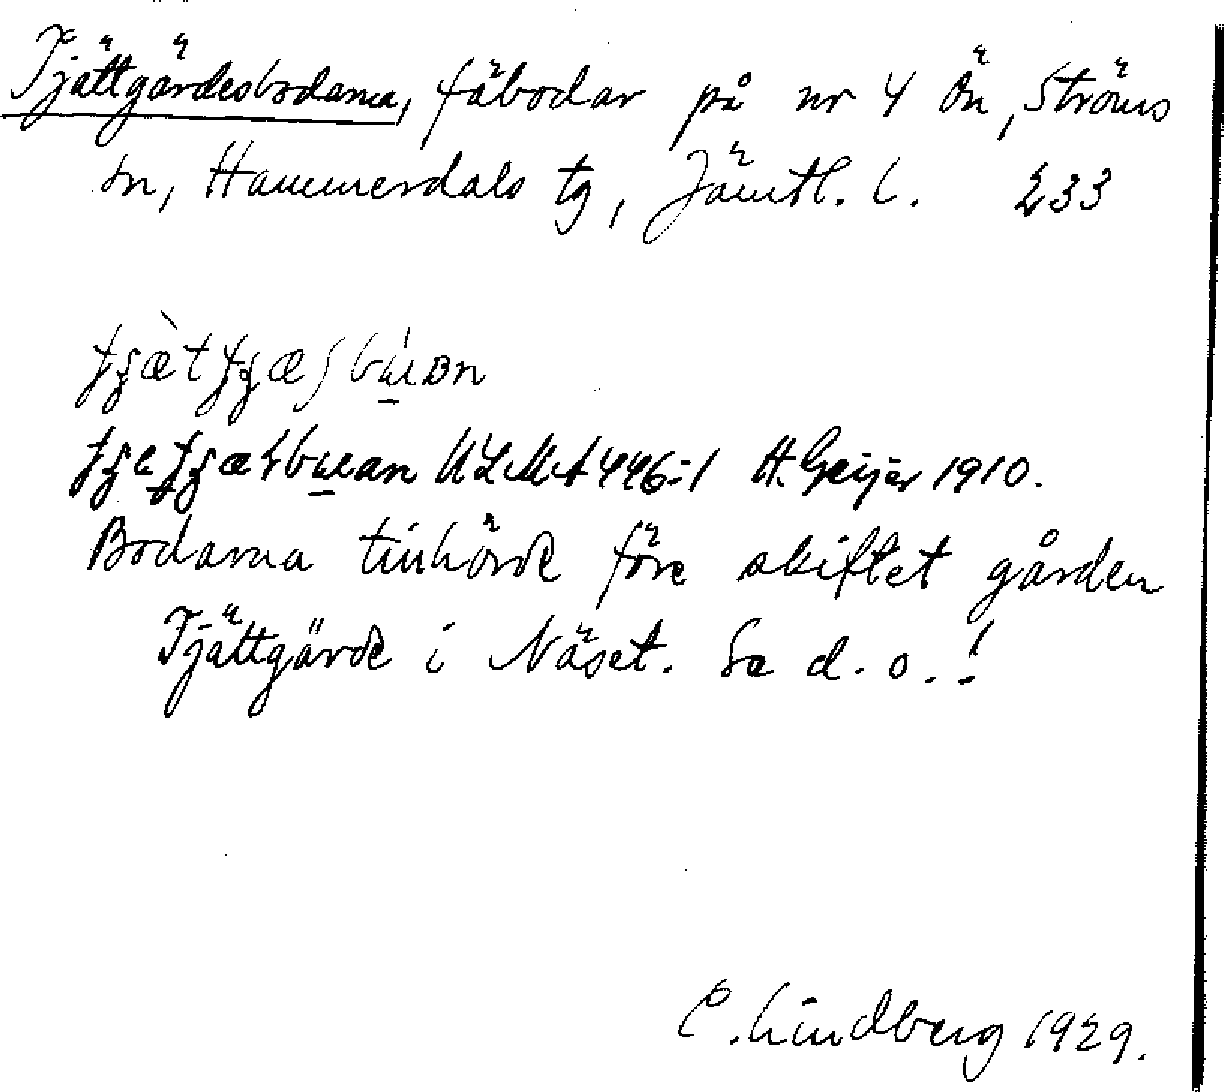 Tjättgärdesbodarna, fäbodar på nr 4 Ön, Ströms
sn, Hammerdals tg, Jämtl. l. 233
ULMA 446:1 H. Geijer 1910.
Bodarna tillhörde före skiftet gården
Tjättgärde i Näset. Se d. o. !
C. Lindberg 1929.